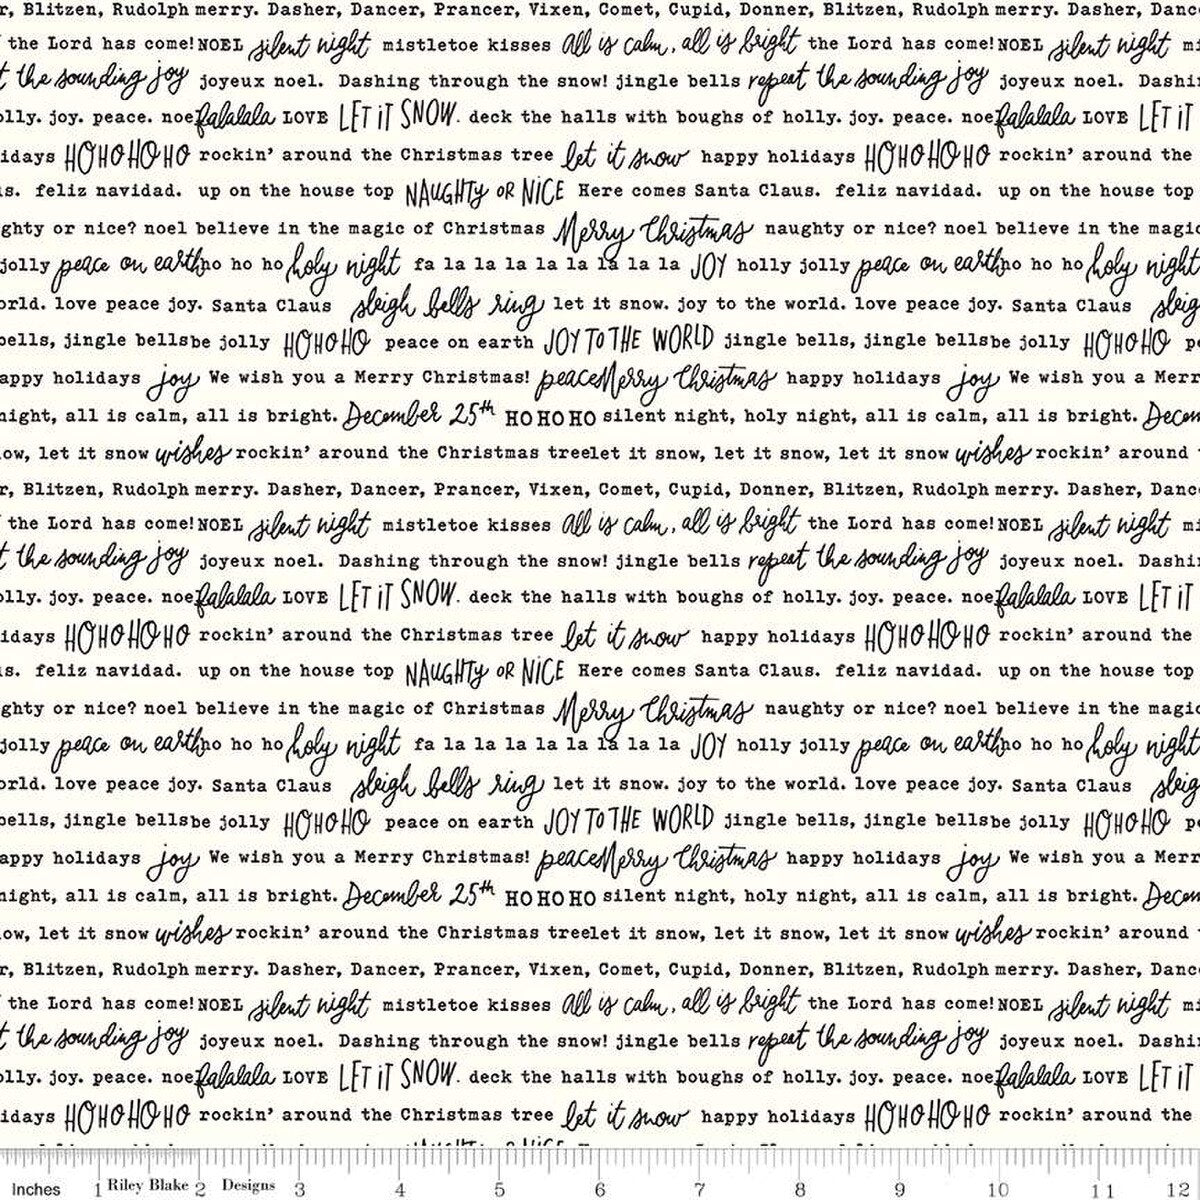 r, Blitzen, Rudolph merry. Dasher, Dancer, Prancer, Vixen, Comet, Cupid, Donner, Blitzen, Rudolph merry. Dasher, Dance
the Lord has come! NOEL silent night mistletoe kisses All is calm, all is bright the Lord has come! NOEL silent night mi
t the sounding joy joyeux noel. Dashing through the snow! jingle bells repeat the sounding joy joyeux noel. Dashi
olly. joy. peace. noe falalala LOVE LET iT SNOW. deck the halls with boughs of holly. joy. peace. noe falalala LOVE LET iT
idays HOHOHOHO rockin' around the Christmas tree let it snow happy holidays HOHOHOHO rockin' around the
s. feliz navidad. up on the house top NAUGHTY OR NICE Here comes Santa Claus. feliz navidad. up on the house top
ghty or nice? noel believe in the magic of Christmas Merry Christmas naughty or nice? noel believe in the magic
jolly peace on earth ho ho ho holy night fa la la la la la la la la JOY holly jolly peace on earth ho ho ho holy night
orld. love peace joy. Santa Claus sleigh bells ring let it snow. joy to the world. love peace joy. Santa Claus sleig
bells, jingle bells be jolly HOHOHO peace on earth JOY TO THE WORLD jingle bells, jingle bells be jolly HOHOHO pe
appy holidays joy We wish you a Merry Christmas! peace Merry Christmas happy holidays joy We wish you a Merr
night, all is calm, all is bright. December 25th HO HO HO silent night, holy night, all is calm, all is bright. Decem
ow, let it snow wishes rockin' around the Christmas tree let it snow, let it snow, let it snow wishes rockin' around
r, Blitzen, Rudolph merry. Dasher, Dancer, Prancer, Vixen, Comet, Cupid, Donner, Blitzen, Rudolph merry. Dasher, Dance
the Lord has come! NOEL silent night mistletoe kisses All is calm, all is bright the Lord has come! NOEL silent night mi
t the sounding joy joyeux noel. Dashing through the snow! jingle bells repeat the sounding joy joyeux noel. Dashi
olly. joy. peace. noe falalala LOVE LET iT SNOW. deck the halls with boughs of holly. joy. peace. noe falalala LOVE LET iT
idays HOHOHOHO rockin' around the Christmas tree let it snow happy holidays HOHOHOHO rockin' around the
s. feliz navidad. up on the house top NAUGHTY OR NICE Here comes Santa Claus. feliz navidad. up on the house top
ghty or nice? noel believe in the magic of Christmas Merry Christmas naughty or nice? noel believe in the magic
jolly peace on earth ho ho ho holy night fa la la la la la la la la JOY holly jolly peace on earth ho ho ho holy night
orld. love peace joy. Santa Claus sleigh bells ring let it snow. joy to the world. love peace joy. Santa Claus sleig
bells, jingle bells be jolly HOHOHO peace on earth JOY TO THE WORLD jingle bells, jingle bells be jolly HOHOHO pe
appy holidays joy We wish you a Merry Christmas! peace Merry Christmas happy holidays joy We wish you a Merr
night, all is calm, all is bright. December 25th HO HO HO silent night, holy night, all is calm, all is bright. Decem
ow, let it snow wishes rockin' around the Christmas tree let it snow, let it snow, let it snow wishes rockin' around
r, Blitzen, Rudolph merry. Dasher, Dancer, Prancer, Vixen, Comet, Cupid, Donner, Blitzen, Rudolph merry. Dasher, Dance
the Lord has come! NOEL silent night mistletoe kisses All is calm, all is bright the Lord has come! NOEL silent night mi
t the sounding joy joyeux noel. Dashing through the snow! jingle bells repeat the sounding joy joyeux noel. Dashi
olly. joy. peace. noe falalala LOVE LET iT SNOW. deck the halls with boughs of holly. joy. peace. noe falalala LOVE LET iT
idays HOHOHOHO rockin' around the Christmas tree let it snow happy holidays HOHOHOHO rockin' around the
Inches 1 Riley Blake 2 Designs 3 4 5 6 7 8 9 10 11 12